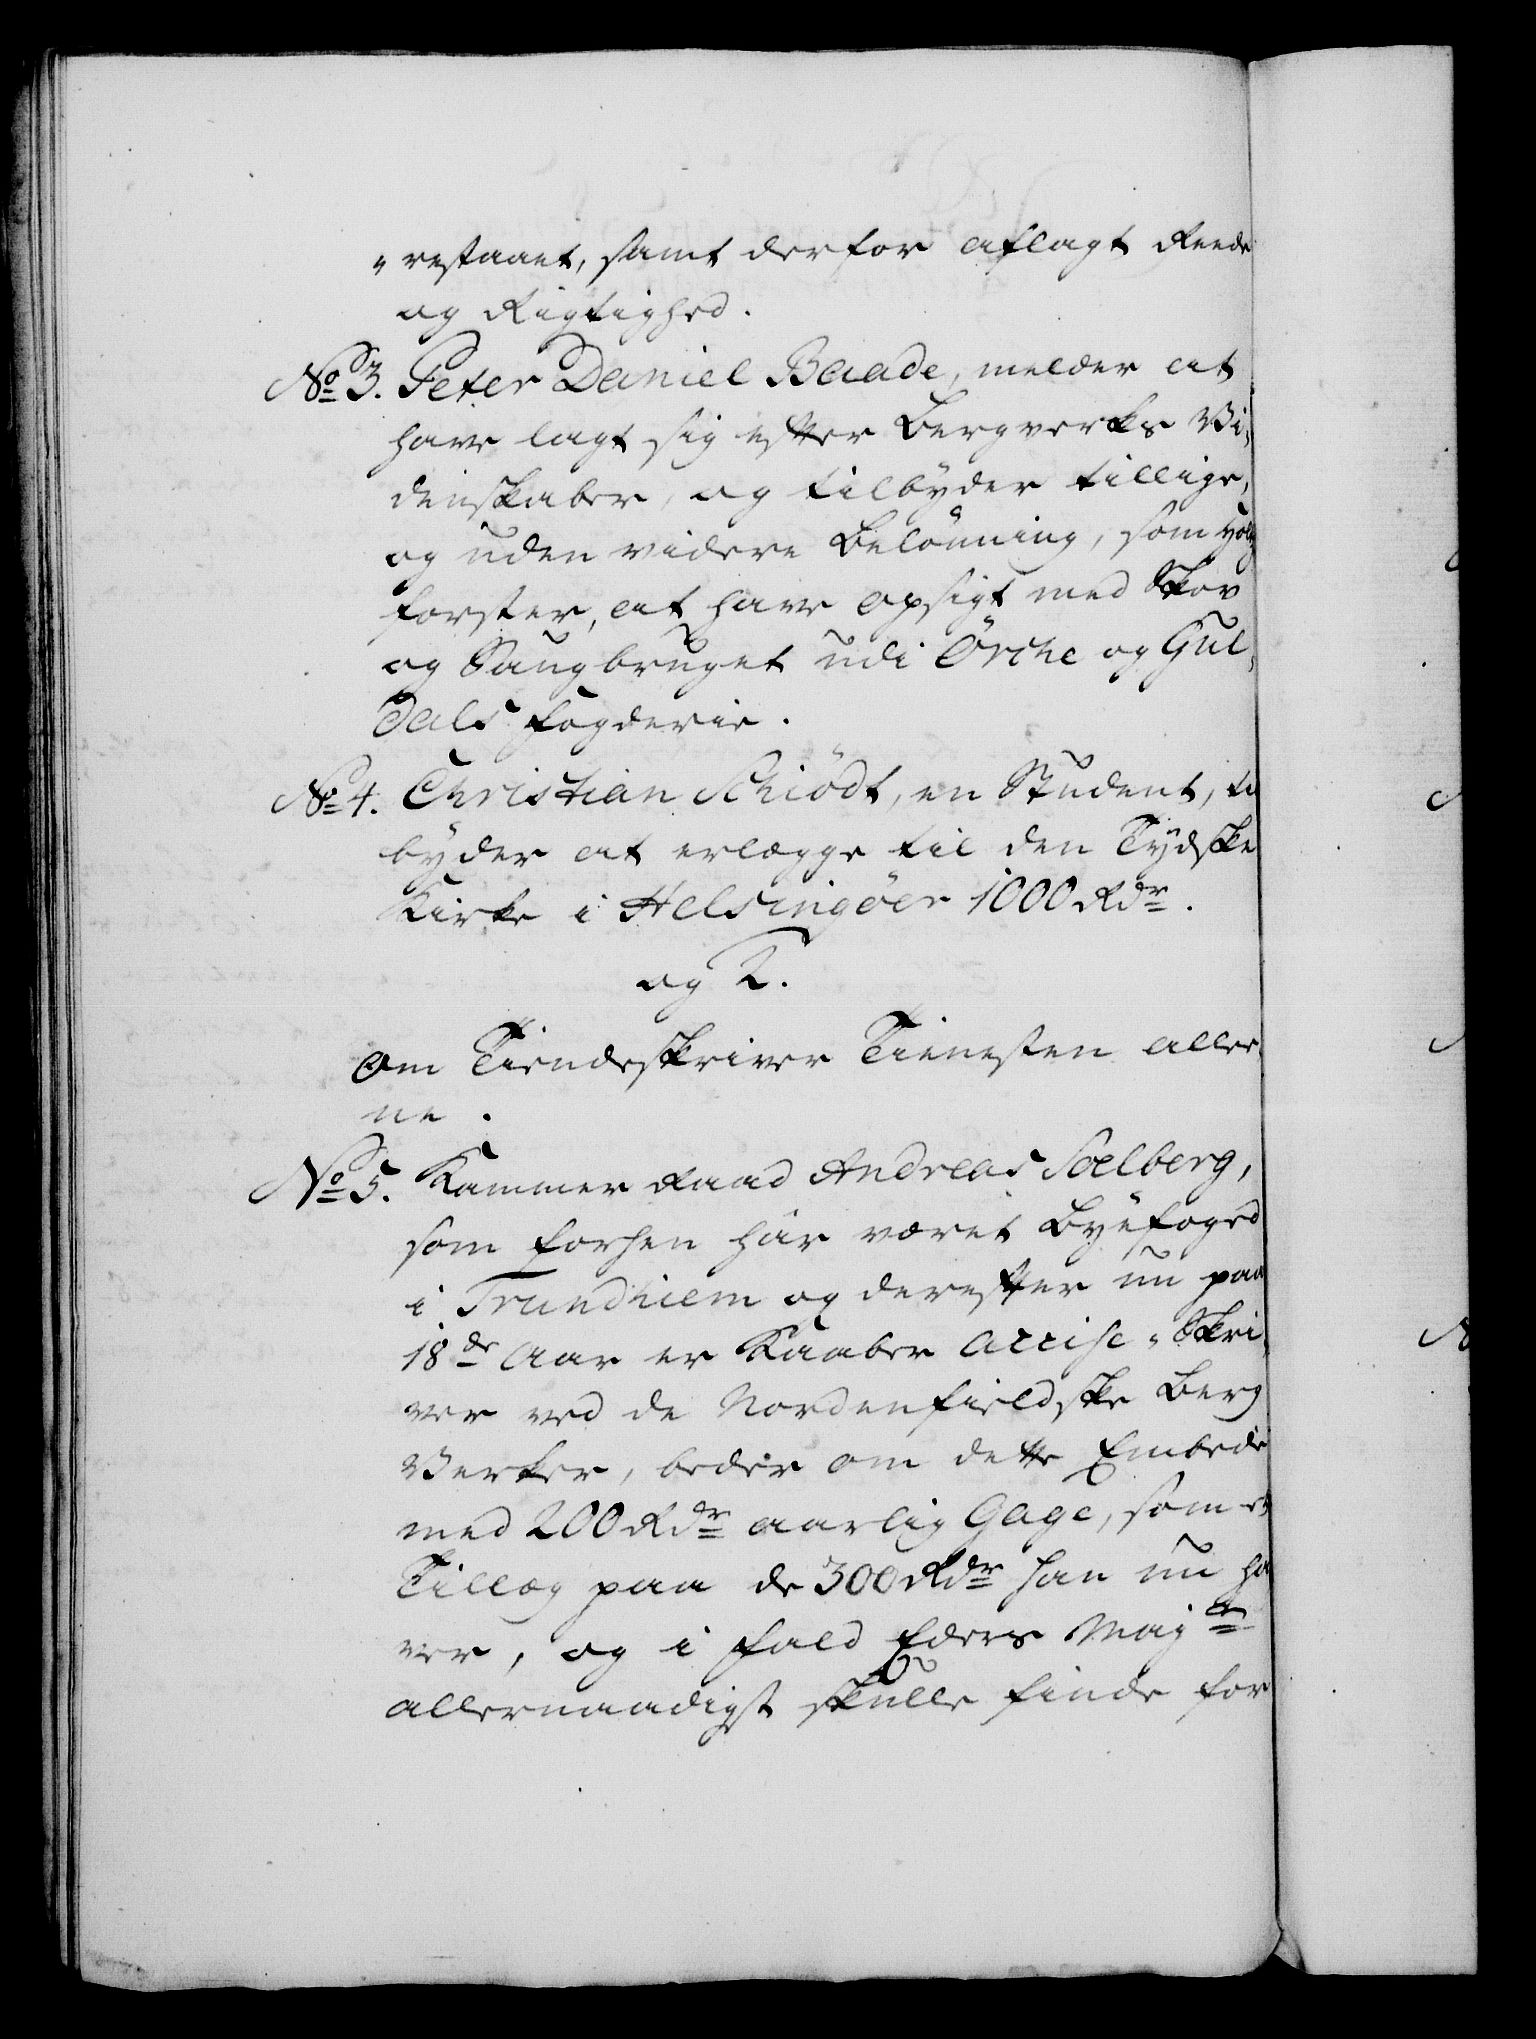 "restaaet, samt derfor aflagt Reede
og Rigtighed.
No 3. Peter Daniel Baade, melder at
have lagt sig efter Bergverks Vi-
denskaber, og tilbyder tillige,
og uden videre Belönning, som
forster, at have opsigt med Skov
og Saugbruget udi Örche og Gul-
dals Fogderie.
No 4. Christian Schiödt, en Student, til
byder at erlægge til den Tydske
Kirke i Helsingöer 1000 Rdr.
og 2.
Om Tiendeskriver Tienesten alle-
ne.
No 5. Kammer Raad Andreas Soelberg,
som forhen har været Byefoged
i Trundhiem og derefter nu paa
18de Aar er Kaaber Accise-Skri-
ver ved de Nordenfieldske Berg
Verker, beder om dette Embede
med 200 Rdr aarlig Gage, som et
Tillæg paa de 300 Rdr han nu ha
ver, og i fald Eders Majt
allernaadigst skulle finde for